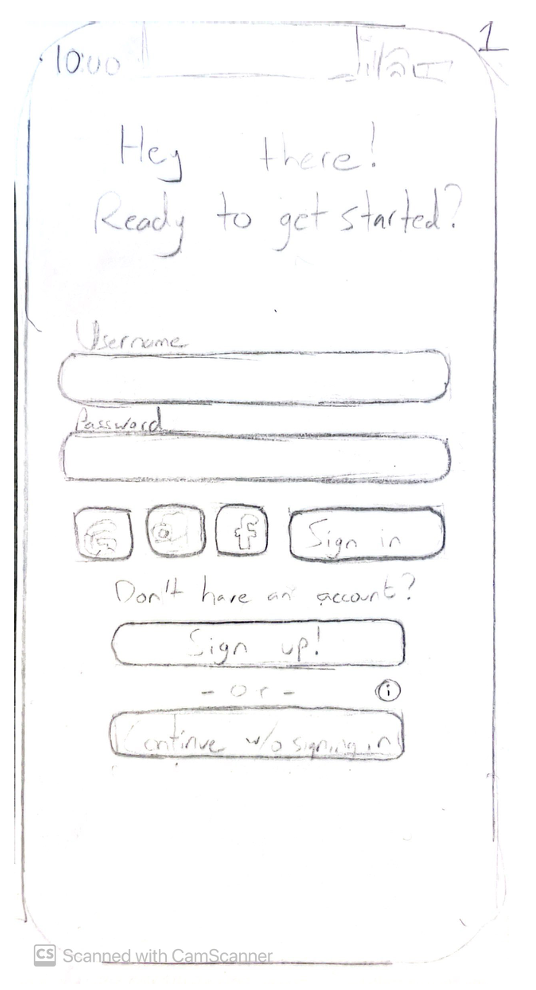 1
10:00
Hey there!
Ready to get started?
Username
Password
f Sign in
Don't have an account?
Sign up!
- Or - i
Continue w/o signing in
CS Scanned with CamScanner